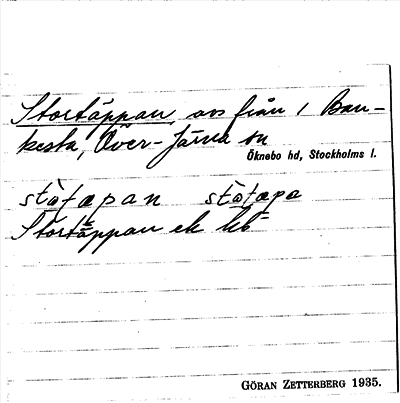 Stortäppan, avs från 1 Ban-
kesta, Över-Järna sn
Öknebo hd, Stockholms l.
stò̀tæpan stò̀tæpa
Stortäppan ek kb
GÖRAN ZETTERBERG 1935.